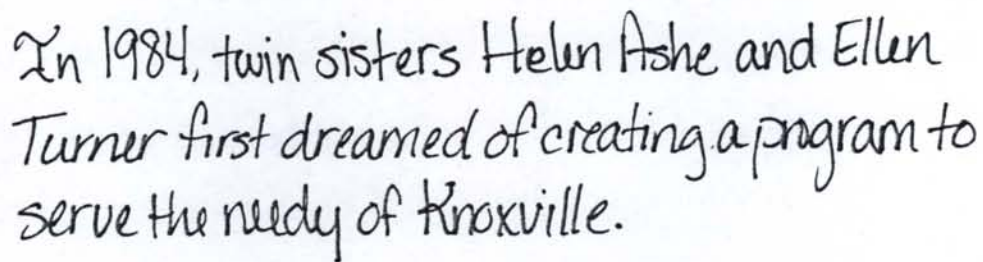 In 1984, twin sisters Helen Ashe and Ellen
Turner first dreamed of creating a program to
serve the needy of Knoxville.